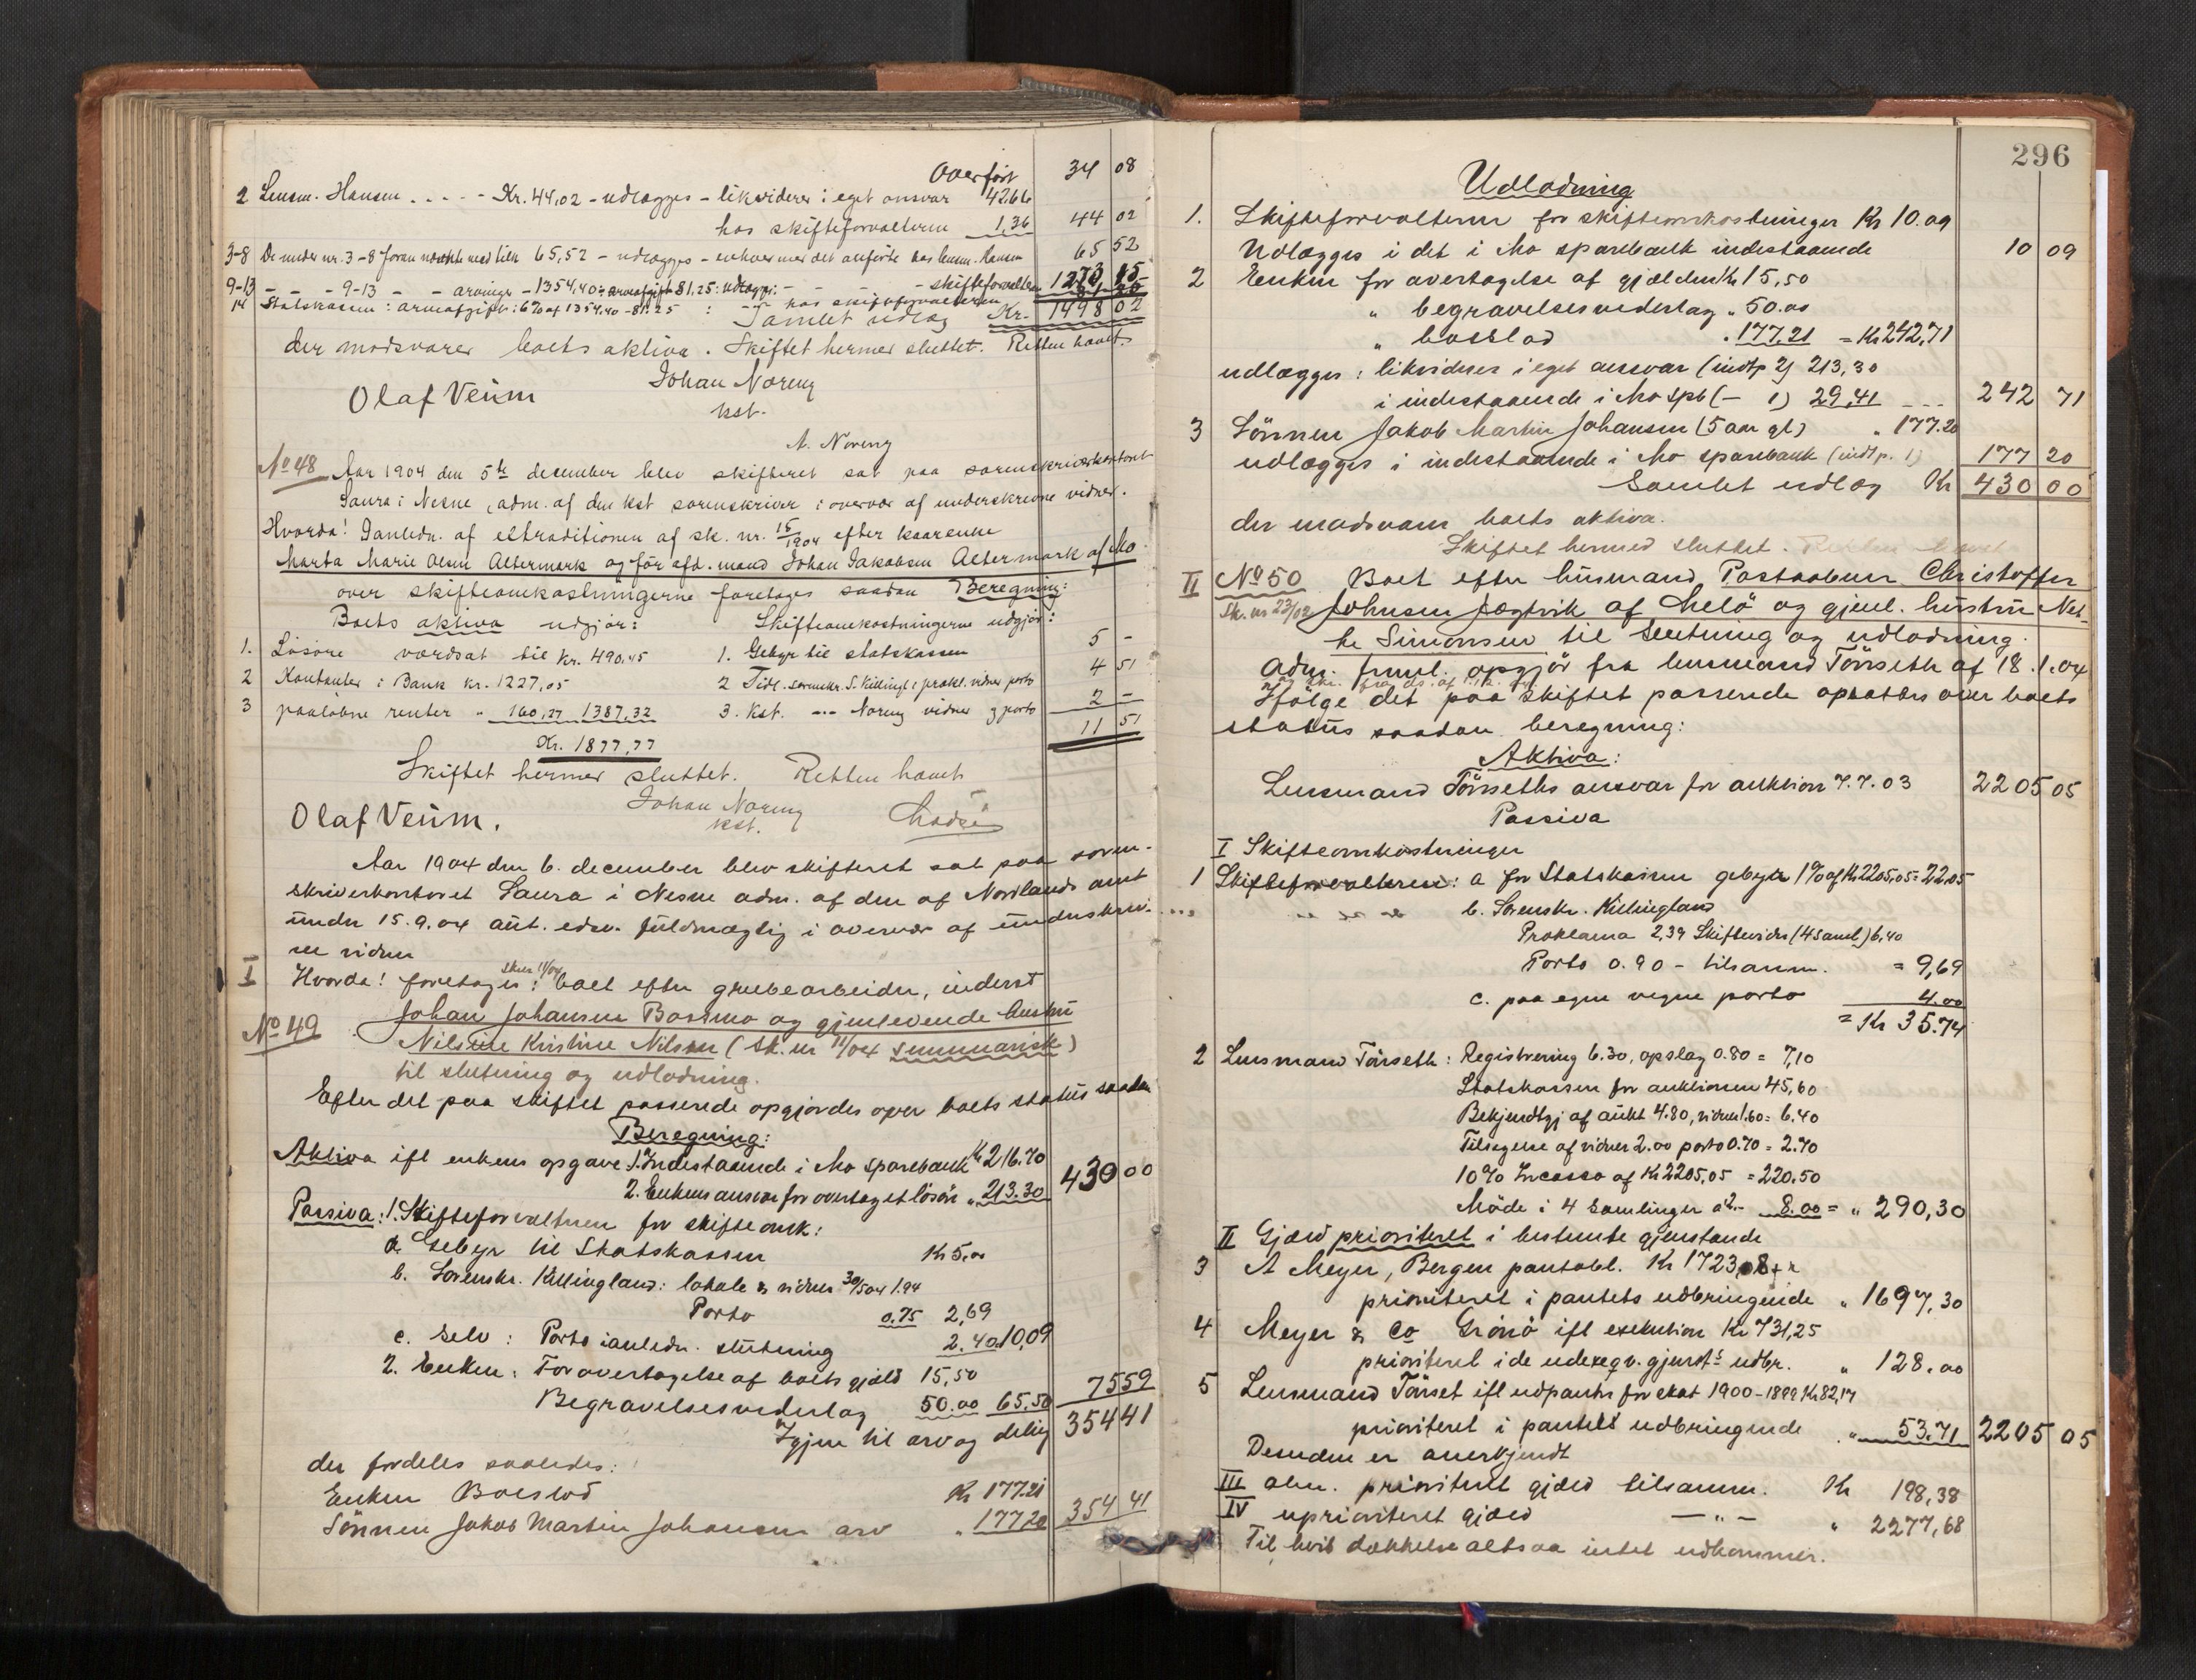 Overført 34 08
2 Lensm. Hansen . . . - - Kr. 44,02 - udlægges - likviderer i eget ansvar 42,66
hos skifteforvalteren 1,36 44 02
3-8 De under nr. 3-8 foran med tils 65,52 - udlægges - enhver med det anførte hos lensm. Hansen 65 52
9-13 - - - 9-13 - - arvinger - 1354,40 ÷ arveafgift 81,25: udlægges: - - - skifteforvalteren 1273 15
14 Statskassen: arveafgift: 6% af 1354,40 - 81.25 : - - hos skifteforvalteren 81 25
Samlet udlæg Kr. 1498 02
der modsvarer boets aktiva. Skiftet hermed sluttet. Retten hævet.
Olaf Veum Johan Noreng
kst.
A. Noreng
No 48 Aar 1904 den 5te december blev skifteret sat paa sorenskriverkontoret
Saura i Nesne, adm. af den kst sorenskriver i overvær af underskrevne vidner.
Hvorda! Ianledn. af extraditionen af sk. nr. 15/1904 efter kaarenke
Marta Marie Olsen Altermark og før afd. mand Johan Jakobsen Altermark af Mo
over skifteomkostningerne foretages saadan Beregning:
Boets aktiva udgjør: Skifteomkostningerne udgjør:
1. Løsøre værdsat til kr. 490,45 1. Gebyr til statskassen 5 -
2 Kontanter i Bank kr. 1227,05 2 Tidl. sorenskr. S. Killingl: prokl. vidner porto 4 51
3 paaløbne renter " 160,27 1387,32 3. Kst. -"- Noreng vidner og porto 2 -
11 51
Kr. 1877,77
Skiftet hermed sluttet. Retten hævet
Olaf Veum. Johan Noreng
kst.
Aar 1904 den 6. december blev skifteret sat paa soren-
skriverkontoret Saura i Nesne adm. af den af Nordlands amt
under 15.9.04 aut. edsv. fuldmægtig i overvær af underskrev-
ne vidner
I Hvorda! foretoges: sknr 11/04 boet efter grubearbeider, inderst
No 49 Johan Johansen Bossmo og gjenlevende hustru
Nilsine Kristine Nilsen (sk. nr 11/04 summarisk)
til slutning og udlodning.
Efter det paa skiftet passerede opgjordes over boets status saadan
Beregning:
Aktiva ifl enkens opgave 1. Indestaaende i Mo sparebank Kr 216.70
2. Enkens ansvar for overtaget løsøre " 213.30 430 00
Passiva: 1. Skifteforvalteren for skifteomk:
a. Gebyr til Statskassen Kr 5,00
b. Sorenskr. Killingland: lokale & vidner 30/5 04 1.94
Porto 0.75 2,69
c. Selv: Porto ianledn. slutning 2.40 10,09
2. Enken: For overtagelse af boets gjæld 15,50
Begravelsesvederlag 50.00 65.50 75 59
Igjen til arv og deling 354 41
der fordeles saaledes:
Enken Boeslod Kr 177.21
Sønnen Jakob Martin Johansen arv " 177 20 354 41
296
Udlodning
1. Skifteforvalteren for skifteomkostninger Kr 10.09
Udlægges i det i Mo sparebank indestaaende 10 09
2 Enken for overtagelse af gjælden Kr 15,50
" begravelsesvederlag " 50.00
" boeslod " 177,21 = Kr 242,71
udlægges: likviderer i eget ansvar (indtp 2) 213,30
i indestaaende i Mo spb (- 1) 29,41 - - - 242 71
3 Sønnen Jakob Martin Johansen (5 aar gl) " 177.20
udlægges i indestaaende i Mo sparebank (indtp. 1) 177 20
Samlet udlæg Kr 430 00
der modsvarer boets aktiva.
Skiftet hermed sluttet. Retten hævet
II No 50 Boet efter husmand, Postaabner Christoffer
Sk. nr 23/02 Johnsen Jægtvik af Melø og gjenl. hustru Net-
te Simonsen til slutning og udlodning.
Adm. freml. opgjør fra lensmand Tørseth af 18.1.04
Ifølge det paa skiftet passerede opsattes over boets
status saadan beregning:
Aktiva:
Lensmand Tørseths ansvar for auktion 7.7.03 2205 05
Passiva
I Skifteomkostninger
1 Skifteforvalteren: a for Statskassen gebyr 1% af Kr 2205,05 = 22,05
b. Sorenskr. Killingland
Proklama 2,39 Skiftevidner (4 saml) 6,40
Porto 0.90 - tilsamm. = 9,69
c. paa egne vegne porto 4.00
= Kr 35.74
2 Lensmand Tørseth: Registrering 6.30, opslag 0.80 = 7,10
Statskassen for auktionen 45,60
Bekjendtgj af aukt 4.80, vidner 1.60 = 6.40
Tilsigelse af vidner 2.00 porto 0.70 = 2.70
10% Incasso af Kr 2205,05 = 220.50
Møde i 4 Samlinger a 2.- 8.00 = " 290,30
II Gjæld prioriteret i bestemte gjenstande
3 A Meyer, Bergen pantobl. Kr 1723,08 + r
prioriteret i pantets udbringende " 1697,30
4 Meyer & Co Grønø ifl exekution Kr 731,25
prioriteret i de udexeqv. gjenst.s udbr. " 128.00
5 Lensmand Tørset ifl udpantn for skat 1900-1899 Kr 82,14
prioriteret i pantets udbringende " 53.71 2205 05
Desuden er anerkjendt
III alm. prioriteret gjæld tilsamm. Kr 198,38
IV uprioriteret gjæld - " - " 2277,68
Til hvis dækkelse altsaa intet udkommer.